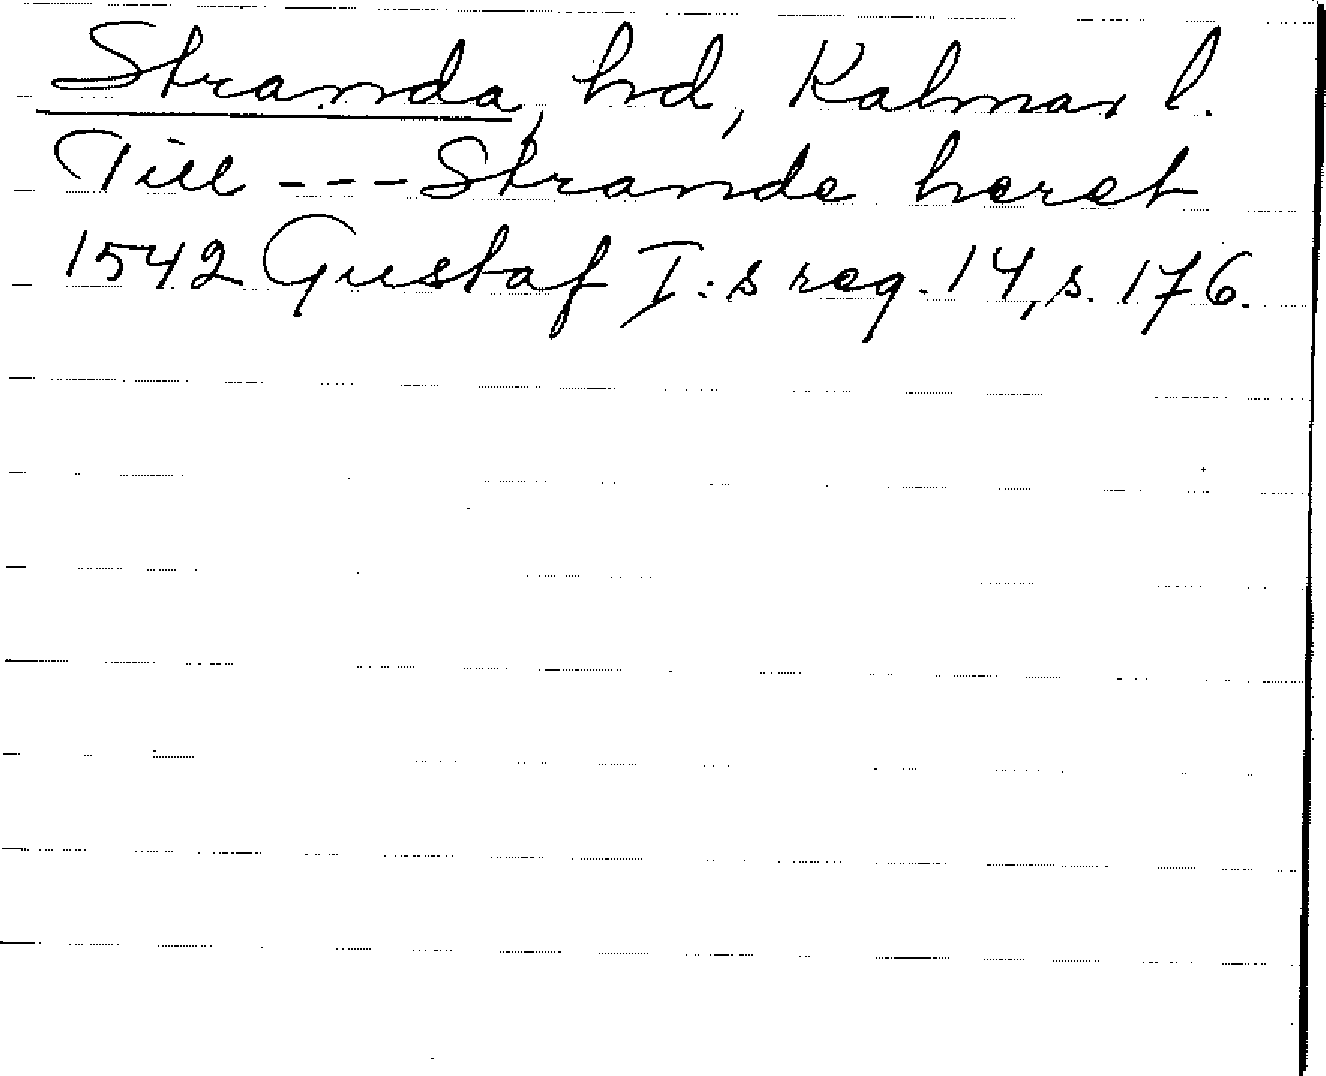 Stranda, hd, Kalmar l.
Till --- Strande heret
1542 Gustaf I:s reg. 14, s. 176.